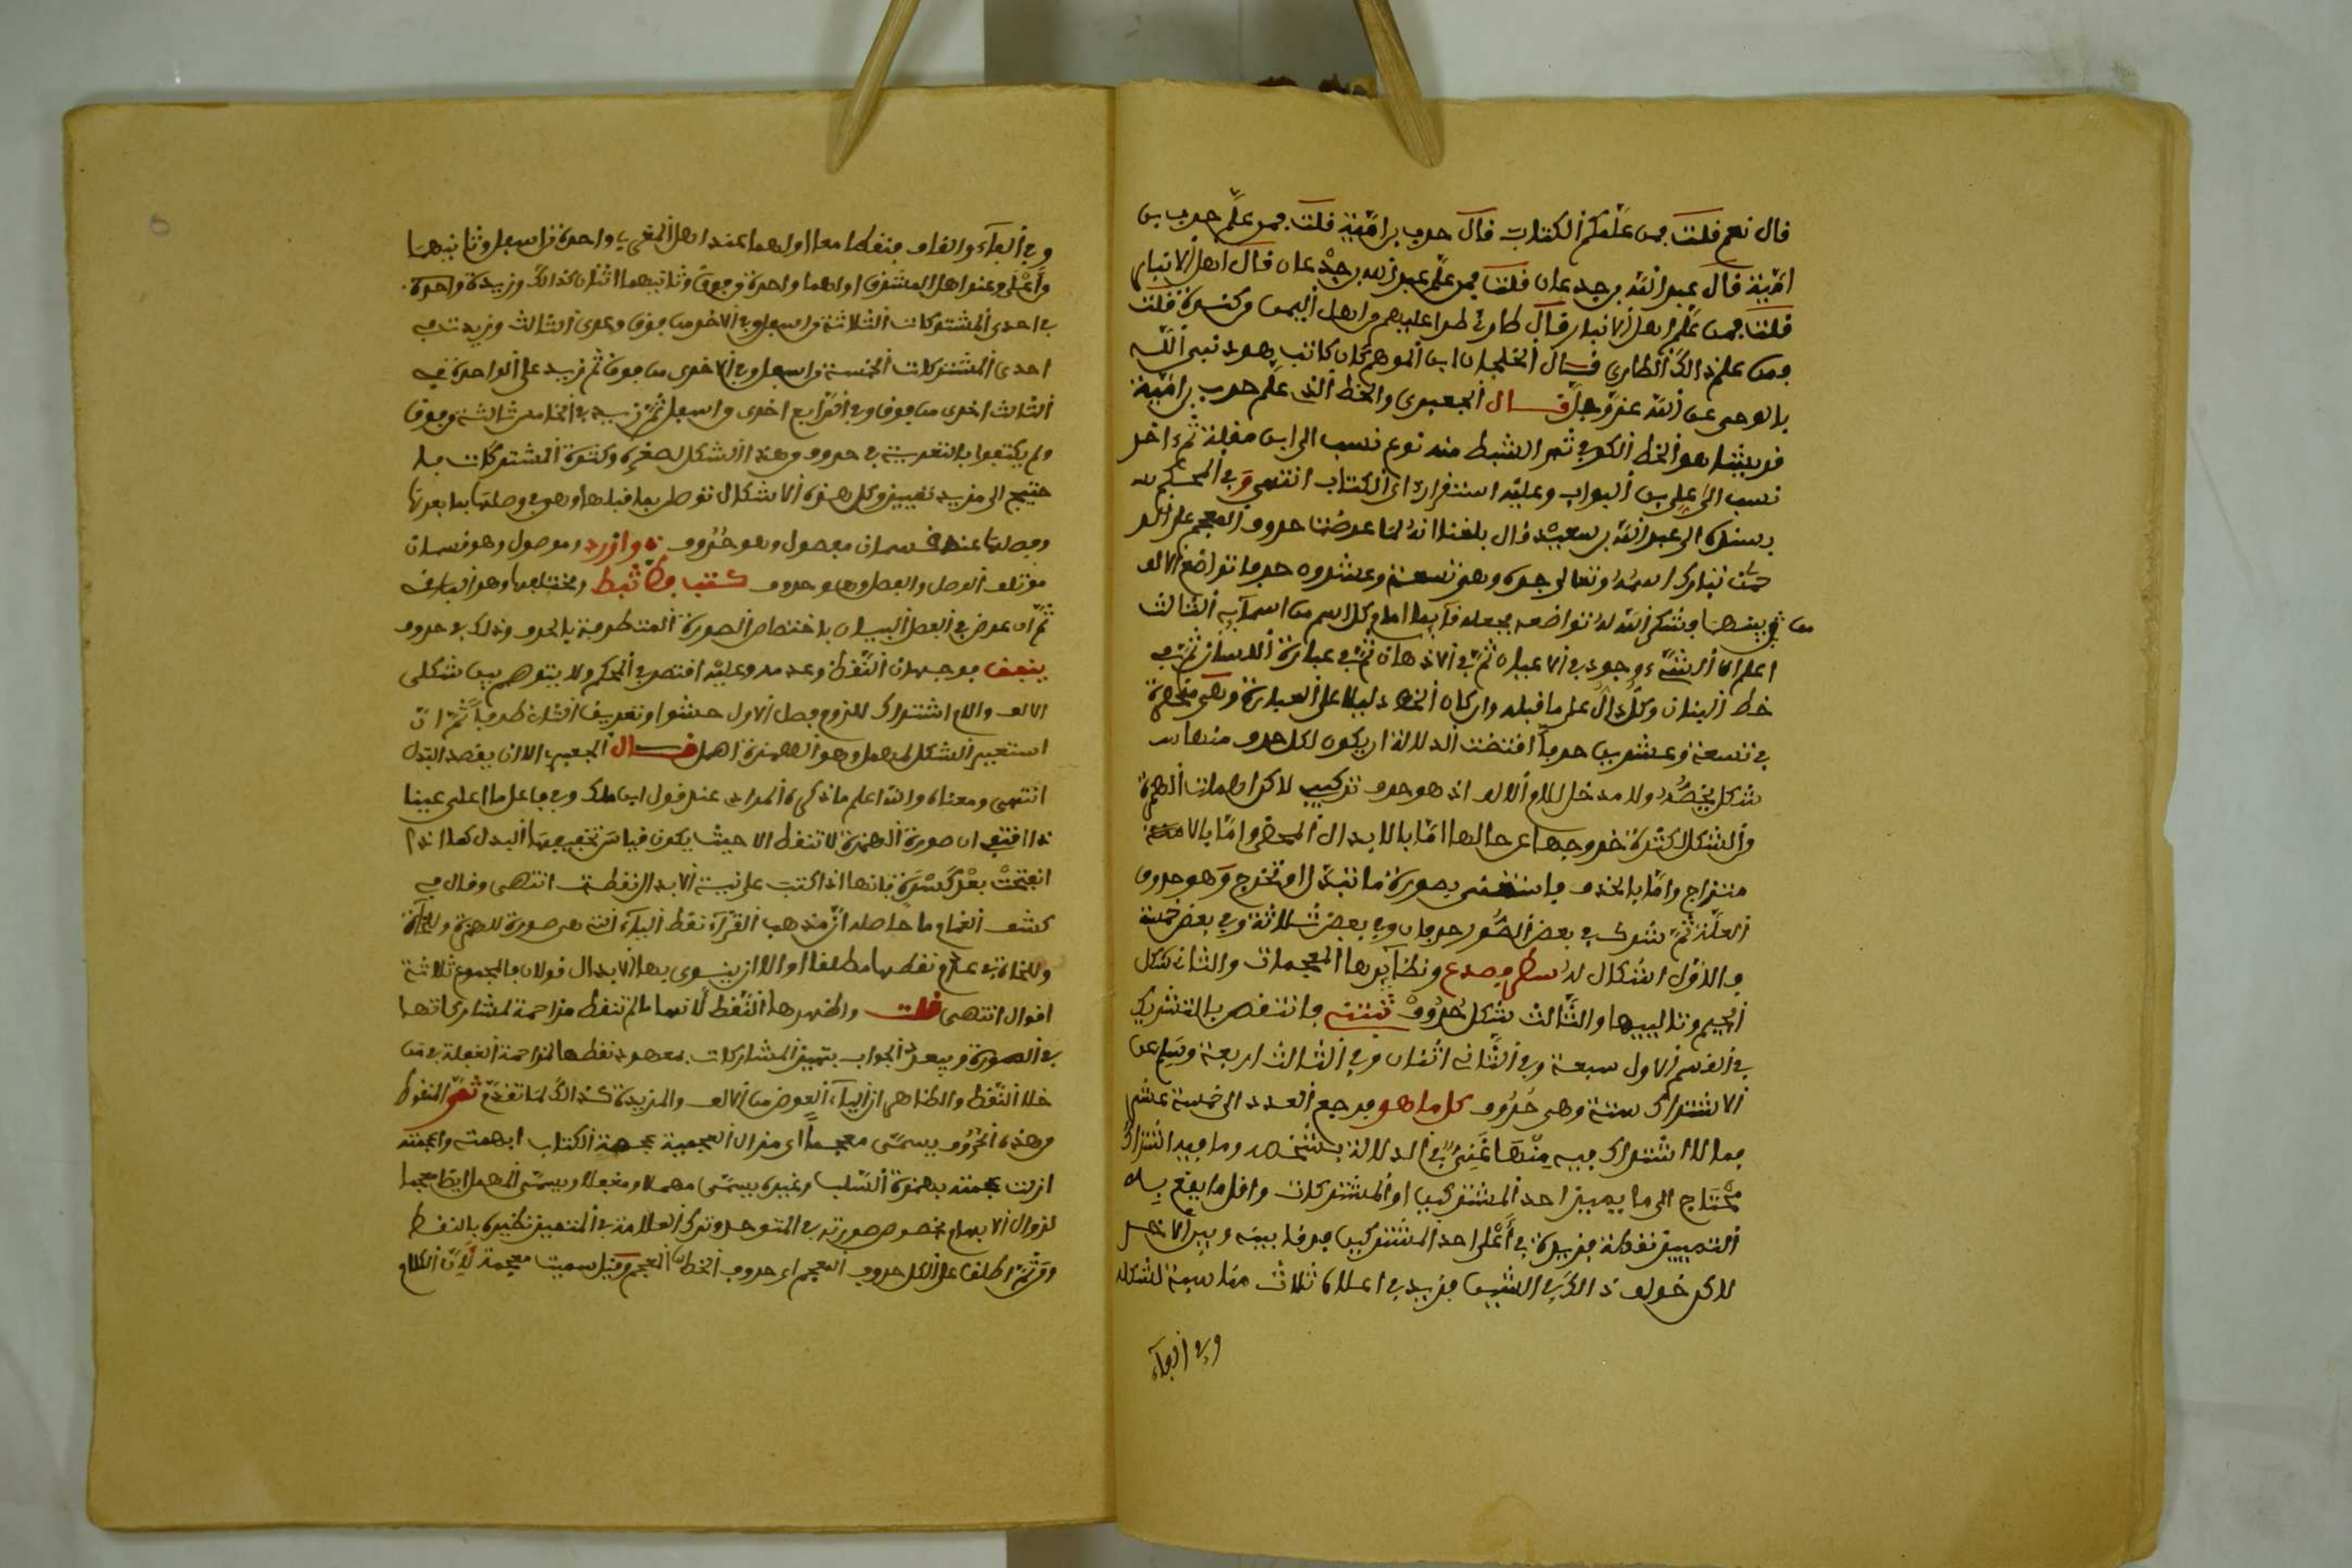 قال نعم قلت فمن علمكم الكتاب قال حرب بن امية قلت فمن علم حرب بن
امية قال عبد الله بن جدعان قلت فمن علم عبد الله بن جدعان قال اهل الانبار
قلت فمن علم اهل الانبار قال طارئ طرا عليهم من اهل اليمن من كندة قلت
ومن علم ذالك الطاري قال الخلجان ابن الموهم كان كاتب هود نبى الله
بالوحى عن الله عز وجل قال الجعبرى والخط الذى علم حرب بن امية
قريشا هو الخط الكوفي ثم استنبط منه نوع نسب الى ابن مقلة ثم ءاخر
نسب الى علي بن البواب وعليه استقر اراى الكتاب انتهى وفي المحكم له
بسنده الى عبد الله بن سعيد قال بلغنا انه لما عرضت حروف المعجم على الر
حمن تبارك اسمه وتعالى جده وهي تسعة وعشرون حرفا تواضع الالف
من بينها وشكر الله له تواضعه فجعله قايما امام كل اسم من اسمآيه الثالث
اعلم ان للشيء وجود في الاعيان ثم في الاذهان ثم في عبارة اللسان ثم في
خط البنان وكل دال على ما قبله وان كان الخط دليلا على العبارة وهي منحصرة
في تسعة وعشرين حرفا اقتضت الدلالة ان يكون لكل حرف منها
شكل يخصه ولا مدخل للام الالف اذ هو حرف تركيب لاكن اهملت الهمزة
من الشكل لكثرة خروجها عن حالها اما بالابدال المحض واما بالا
متزاج واما بالحذف فاستغنى بصورة ما تبدل او تخرج وهو حروف
العلة ثم شرك في بعض الصور حرفان وفي بعض ثلاثة وفي بعض خمسة
فالاول اشكال له وصدع ونظآيرها المعجمات والثانى شكل
الجيم وتالييها والثالث شكل حروف فانتقص بالتشريك
في القسم الاول سبعة وفي الثانى اثنان وفي الثالث اربعة وسلم من
الاشتراك ستة وهي حروف كل ما هو فرجع العدد الى خمسة عشر
فما لا اشتراك فيه منها غني في الدلالة بشخصه وما فيه اشتراك
محتاج الى ما يميز احد المشتركين او المشتركات واقل ما يقع به
التمييز نقطة فزيدة في اعلى احد المشتركين فرقا بينه وبين الاخر
لاكن خولف ذالك في الشين فزيد في اعلاه ثلاث مناسبة لشكله
وفي الفآء
وفي الفآء والقاف بنقطهما معا اولهما عند اهل المغرب واحدة من اسفل وثانيهما
من اعلى وعند اهل المشرق اولهما واحدة من فوق وثانيهما اثنان كذالك وزيدة واحدة
في احدى المشتركات الثلاثة من اسفل وفي الاخر من فوق وعرى الثالث وزيدت في
احدى المشتركات الخمسة من اسفل وفي الاخرى من فوق ثم زيد على الواحدة في
الثالث اخرى من فوق وفي الرابع اخرى من اسفل ثم زيد في الخامس ثالثة من فوق
ولم يكتفوا بالتعرية في حرف من هذا الشكل لصغره وكثرة المشتركات فا
حتيج الى مزيد تمييز وكل هذه الاشكال توصل بما قبلها وهي في وصلها بما بعدها
وفصلها عنه قسمان مفصول وهو حروف وموصول وهو قسمان
مؤتلف الوصل والفصل وهو حروف ومختلفها وهو الباقى
ثم ان عرض في الفصل البيان باختصاص الصورة المتطرفة بالحرف وذلك في حروف
ينفق فوجهان النقط وعدمه وعليه اقتصر في المحكم ولا يتوهم بين شكلى
الالف واللام اشتراك للزوم فصل الاول حشوا وتعريف الثان طرفا ثم ان
استعير الشكل لمهمل وهو الهمزة اهمل قال الجعبرى الا ان يقصد البدل
انتهى ومعناه والله اعلم ما ذكره المرادى عند قول ابن ملك وفي فاعل ما اعل عينا
ذا اقتفى ان صورة الهمزة لا تنقط الا حيث يكون قياس تخفيفها البدل كما اذا
انفتحت بعد كسرة فانها اذا كتبت على نية الابدال نقطت انتهى وقال في
كشف الغمام ما حاصله ان مذهب القرآء نقط اليآء التى هى صورة للهمزة وللنحاة
وللنحاة في عدم نقطها مطلقا او الا ان ينوى بها الابدال قولان فالمجموع ثلاثة
اقوال انتهى قلت واظهرها النقط لانها ما لم تنقط مزاحمة لمشاركاتها
في الصورة ويبعد الجواب بتمييز المشاركات بمعهود نقطها لمزاحمة الغفلة في من
خلا النقط والظاهر ان اليآء العوض من الالف والمزيدة كذالك لما تقدم ثم المنقوط
من هذه الحروف يسمى معجما اى مزال العجمية عجمة الكتاب ابهمته واعجمته
ازلت عجمته بهمزة السلب وغيره يسمى مهملا ومغفلا ويسمى المهمل ايضا معجما
لزوال الابهام بخصوص صورته في المتوحد وترك العلامة في المتميز نظيره بالنقط
ومن ثم اطلق على الكل حروف المعجم اى حروف الخط المعجم وقيل سميت معجمة لان الكلام